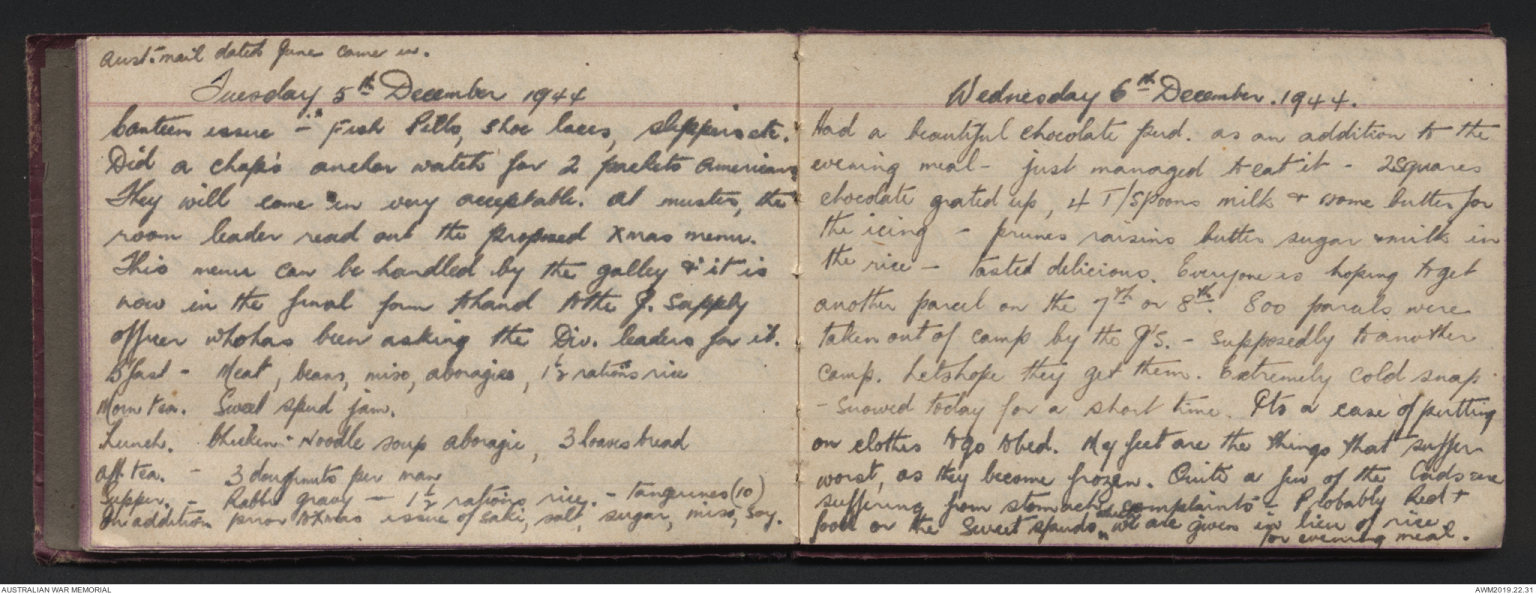 Aust. mail dated June came in.
Tuesday 5th December 1944
Canteen issue - Fish Pills, shoe laces, slippers etc.
Did a chap's anchor watch for 2 packets Americans
They will come in very acceptable. At muster, the
room leader read out the proposed Xmas menu.
This menu can be handled by the galley & it is
now in the final form to hand to the J. Supply
officer who has been asking the Div. leaders for it.
B'fast - Meat, beans, miso, aboragies, 1 1/2 rations rice
Morn tea. Sweet spud jam.
Lunch. Chicken Noodle soup aboragie, 3 loaves bread
Aft tea. - 3 doughnuts per man
Supper. - Rabbit gravy - 1 1/2 rations rice. - tangerines (10)
In addition prior to Xmas issue of saki, salt, sugar, miso, soy.
Wednesday 6th December. 1944.
Had a beautiful chocolate pud. as an addition to the
evening meal - just managed to eat it - 2 squares
chocolate grated up, 4 T/Spoons milk & some butter for
the icing - prunes raisins butter sugar & milk in
the rice - tasted delicious. Everyone is hoping to get
another parcel on the 7th or 8th. 800 parcels were
taken out of camp by the J's. - supposedly to another
camp. Let's hope they get them. Extremely cold snap
- Snowed today for a short time. It's a case of putting
on clothes to go to bed. My feet are the things that suffer
worst, as they become frozen. Quite a few of the lads are
suffering from stomach complaints - Probably Red +
food or the sweet spuds we are given in lieu of rice
for evening meal.
AUSTRALIAN WAR MEMORIAL
AWM2019.22.31